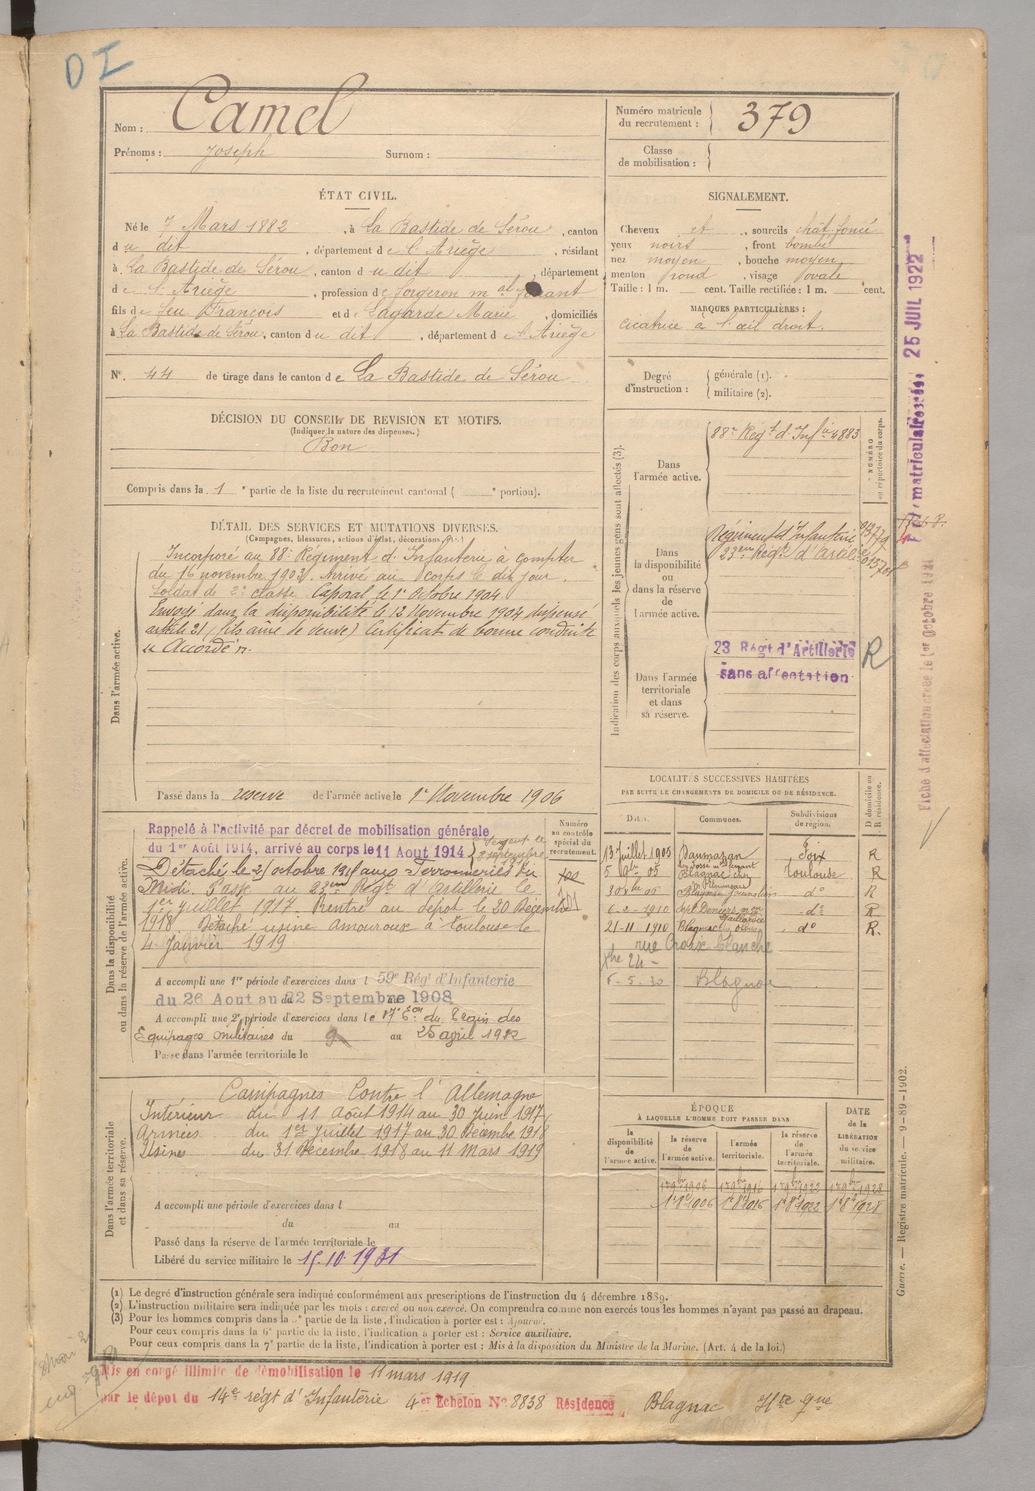 DI
Nom : Camel
Prénoms : Joseph Surnom :
Numéro matricule du recrutement : 379
Classe de mobilisation :
ÉTAT CIVIL.
Né le 7 Mars 1882, à La Bastide de Sérou, canton
du dit, département de l'Ariège, résidant
à La Bastide de Sérou, canton du dit, département
de l'Ariège, profession de forgeron mal ferrant
fils de feu François et de Lagarde Marie, domiciliés
à La Bastide de Sérou, canton du dit, département de l'Ariège
N° 44 de tirage dans le canton de La Bastide de Sérou
SIGNALEMENT.
Cheveux et, sourcils chât. foncé
yeux noirs, front bombé
nez moyen, bouche moyen
menton rond, visage ovale
Taille : 1 m. cent. Taille rectifiée : 1 m. cent.
MARQUES PARTICULIÈRES :
cicatrice à l'œil droit.
Degré d'instruction : générale (1).
militaire (2).
DÉCISION DU CONSEIL DE REVISION ET MOTIFS.
(Indiquer la nature des dispenses.)
Bon
Compris dans la 1e partie de la liste du recrutement cantonal ( e portion).
DÉTAIL DES SERVICES ET MUTATIONS DIVERSES.
(Campagnes, blessures, actions d'éclat, décorations, etc.)
Dans l'armée active.
Incorporé au 88e Régiment d'Infanterie à compter
du 16 novembre 1903. Arrivé au corps le dit jour.
Soldat de 2e classe. Caporal le 1er Octobre 1904
Envoyé dans la disponibilité le 12 Novembre 1904 dispensé
article 21, (fils aîné de veuve) Certificat de bonne conduite
Accordé
Passé dans la réserve de l'armée active le 1er Novembre 1906
Indication des corps auxquels les jeunes gens sont affectés (3).
NUMÉRO au répertoire du corps.
Dans l'armée active.
88e Régt d'Infie 4883
Dans la disponibilité ou dans la réserve de l'armée active.
Régiment d'Infanterie
23eme Régt d'Artillerie
Dans l'armée territoriale et dans sa réserve.
23 Régt d'Artillerie R
sans affectation
Dans la disponibilité ou dans la réserve de l'armée active.
Numéro au contrôle spécial du recrutement.
Rappelé à l'activité par décret de mobilisation générale
du 1er Août 1914, arrivé au corps le 11 Aout 1914
Détaché le 21 octobre aux Ferronneries du
Midi. Passé au 23eme Régt d'Artillerie le
1er juillet 1917 Rentré au dépôt le 30 Décembre
1918. Détaché usine Amouroux à Toulouse le
4 Janvier 1919
A accompli une 1re période d'exercices dans l 59e Régt d'Infanterie
du 26 Aout au 22 Septembre 1908
A accompli une 2e période d'exercices dans le 17e Eon du Train des
Equipages militaires du 9 au 25 avril 1912
Passé dans l'armée territoriale le
LOCALITÉS SUCCESSIVES HABITÉES
PAR SUITE LE CHANGEMENTS DE DOMICILE OU DE RÉSIDENCE.
Dates. Communes. Subdivisions de région. D domicile ou R résidence.
13 Juillet 1905 Daumazan Foix R
5 9bre 05 Blagnac Toulouse R
do R
6-2-1910 do R
21-11-1910 Blagnac do R.
rue Croix Blanche
6-5-20 Blagnac
Dans l'armée territoriale et dans sa réserve.
Campagnes Contre l'Allemagne
Intérieur du 11 Août 1914 au 30 Juin 1917
Armées du 1er Juillet 1917 au 30 Décembre 1918
Usine du 31 Décembre 1918 au 11 Mars 1919
A accompli une période d'exercices dans l
du au
Passé dans la réserve de l'armée territoriale le
Libéré du service militaire le 15.10.1931
ÉPOQUE
À LAQUELLE L'HOMME DOIT PASSER DANS
la disponibilité de l'armée active.
la réserve de l'armée active.
l'armée territoriale.
la réserve de l'armée territoriale.
DATE de la LIBÉRATION du service militaire.
1 9bre 1906 1 9bre 1916 1 9bre 1922 1 9bre 1928
1er 8bre 1906 1er 8bre 1916 1er 8bre 1922 1er 8bre 1928
(1) Le degré d'instruction générale sera indiqué conformément aux prescriptions de l'instruction du 4 décembre 1889.
(2) L'instruction militaire sera indiquée par les mots : exercé ou non exercé. On comprendra comme non exercés tous les hommes n'ayant pas passé au drapeau.
(3) Pour les hommes compris dans la 2e partie de la liste, l'indication à porter est : Ajourné.
Pour ceux compris dans la 6e partie de la liste, l'indication à porter est : Service auxiliaire.
Pour ceux compris dans la 7e partie de la liste, l'indication à porter est : Mis à la disposition du Ministre de la Marine. (Art. 4 de la loi.)
Mis en congé illimité de démobilisation le 11 mars 1919
par le dépot du 14e régt d'Infanterie 4er Echelon No 8838 Résidence Blagnac Hte Gne
25 JUIL 1922
Fiche d'affectation créée le 1er Octobre 1921
Guerre. — Registre matricule. — 9-89-1902.